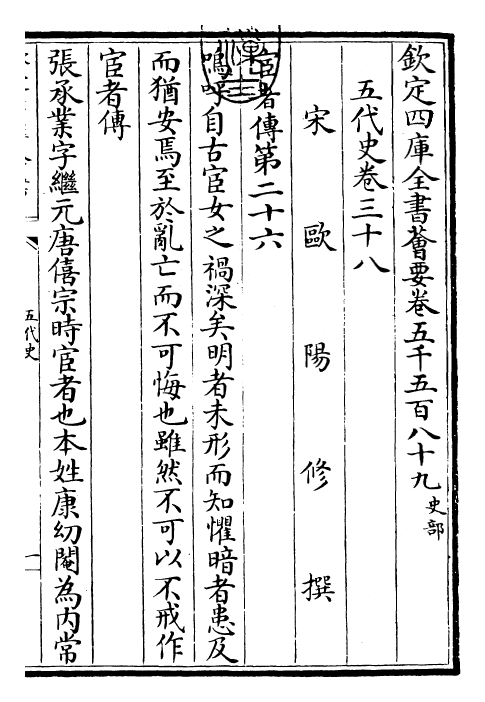 欽定四庫全書薈要卷五千五百八十九 史部
五代史卷三十八
宋 歐 陽 修 撰
宦者傳第二十六
嗚呼自古宦女之禍深矣明者未形而知懼暗者患及
而猶安焉至於亂亡而不可悔也雖然不可以不戒作
宦者傳
張承業字繼元唐僖宗時宦者也本姓康幼閹為内常
五代史
一